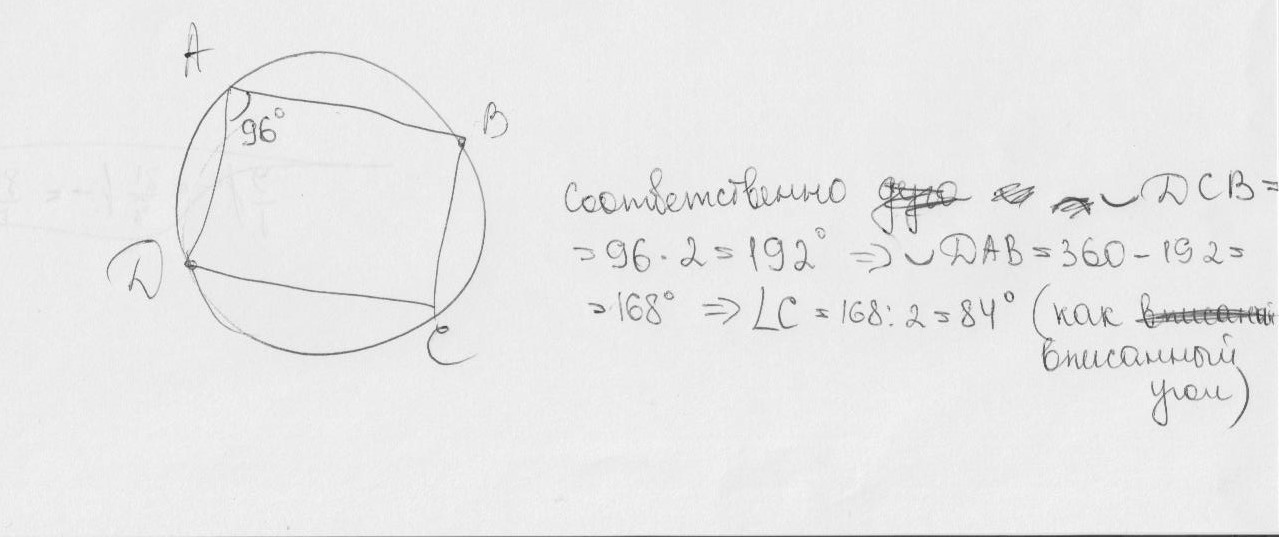 A
96°
B
D
C
Соответственно ◡ DCB =
= 96 · 2 = 192° => ◡ DAB = 360 - 192 =
= 168° => ∠C = 168 : 2 = 84° (как
вписанный
угол)